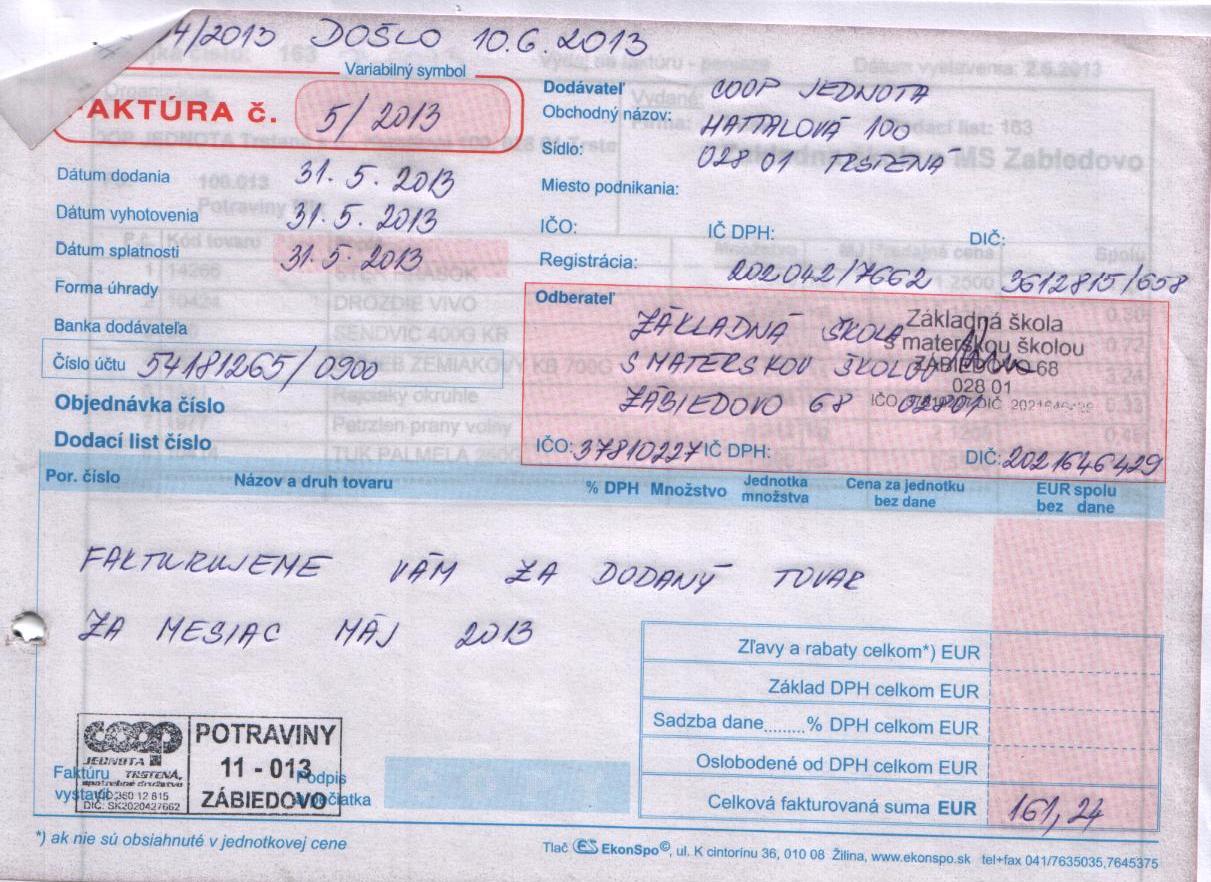 4/2013 DOŠLO 10.6.2013
Variabilný symbol
FAKTÚRA č. 5/2013
Dátum dodania 31. 5. 2013
Dátum vyhotovenia 31. 5. 2013
Dátum splatnosti 31. 5. 2013
Forma úhrady
Banka dodávateľa
Číslo účtu 54181265/0900
Objednávka číslo
Dodací list číslo
Dodávateľ COOP JEDNOTA
Obchodný názov: HATTALOVÁ 100
Sídlo: 028 01 TRSTENÁ
Miesto podnikania:
IČO: IČ DPH: DIČ:
Registrácia: 202042/7662 3612815/658
Odberateľ
ZÁKLADNÁ ŠKOLA
S MATERSKOU ŠKOLOU
ZÁBIEDOVO 68 02801
Základná škola
s materskou školou
ZÁBIEDOVO 68
028 01
IČO: 37810227 IČ DPH: DIČ: 2021646429
Por. číslo Názov a druh tovaru % DPH Množstvo Jednotka množstva Cena za jednotku bez dane EUR spolu bez dane
FAKTURUJEME VÁM ZA DODANÝ TOVAR
ZA MESIAC MÁJ 2013
Zľavy a rabaty celkom*) EUR
Základ DPH celkom EUR
Sadzba dane.......% DPH celkom EUR
Oslobodené od DPH celkom EUR
Celková fakturovaná suma EUR 161,24
COOP
JEDNOTA
TRSTENÁ,
spotrebné družstvo
DIČ: SK2020427662
POTRAVINY
11 - 013
ZÁBIEDOVO
Faktúru
vystavil
Podpis
a pečiatka
*) ak nie sú obsiahnuté v jednotkovej cene
Tlač ES EkonSpo©, ul. K cintorínu 36, 010 08 Žilina, www.ekonspo.sk tel+fax 041/7635035,7645375